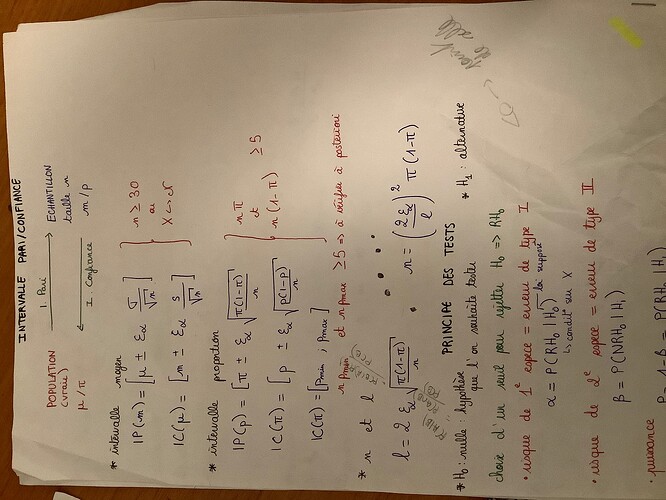 INTERVALLE PARI/CONFIANCE
POPULATION
(vraie)
μ/π
I. Pari
I. Confiance
ECHANTILLON
taille n
m/p
* intervalle moyen
IP(m) = [μ ± εα σ/√n]
IC(μ) = [m ± εα s/√n]
n ≥ 30
ou
X ↪ N
* intervalle proportion
IP(p) = [π ± εα √(π(1-π)/n)]
IC(π) = [p ± εα √(p(1-p)/n)]
nπ
et
n(1-π)
≥ 5
IC(π) = [pmin ; pmax]
n pmin et n pmax ≥ 5 => à vérifier à posteriori
* n et l
l = 2 εα √(π(1-π)/n)
n = (2 εα/l)² π(1-π)
PRINCIPE DES TESTS
* H0 : nulle : hypothèse que l'on souhaite tester
* H1 : alternative
choix d'un seuil pour rejeter H0 => RH0
• risque de 1e espèce = erreur de type I
α = P(RH0 | H0)
la suppose
↳ condit° sur X
• risque de 2e espèce = erreur de type II
β = P(NRH0 | H1)
• puissance
1-β = P(RH0 | H1)